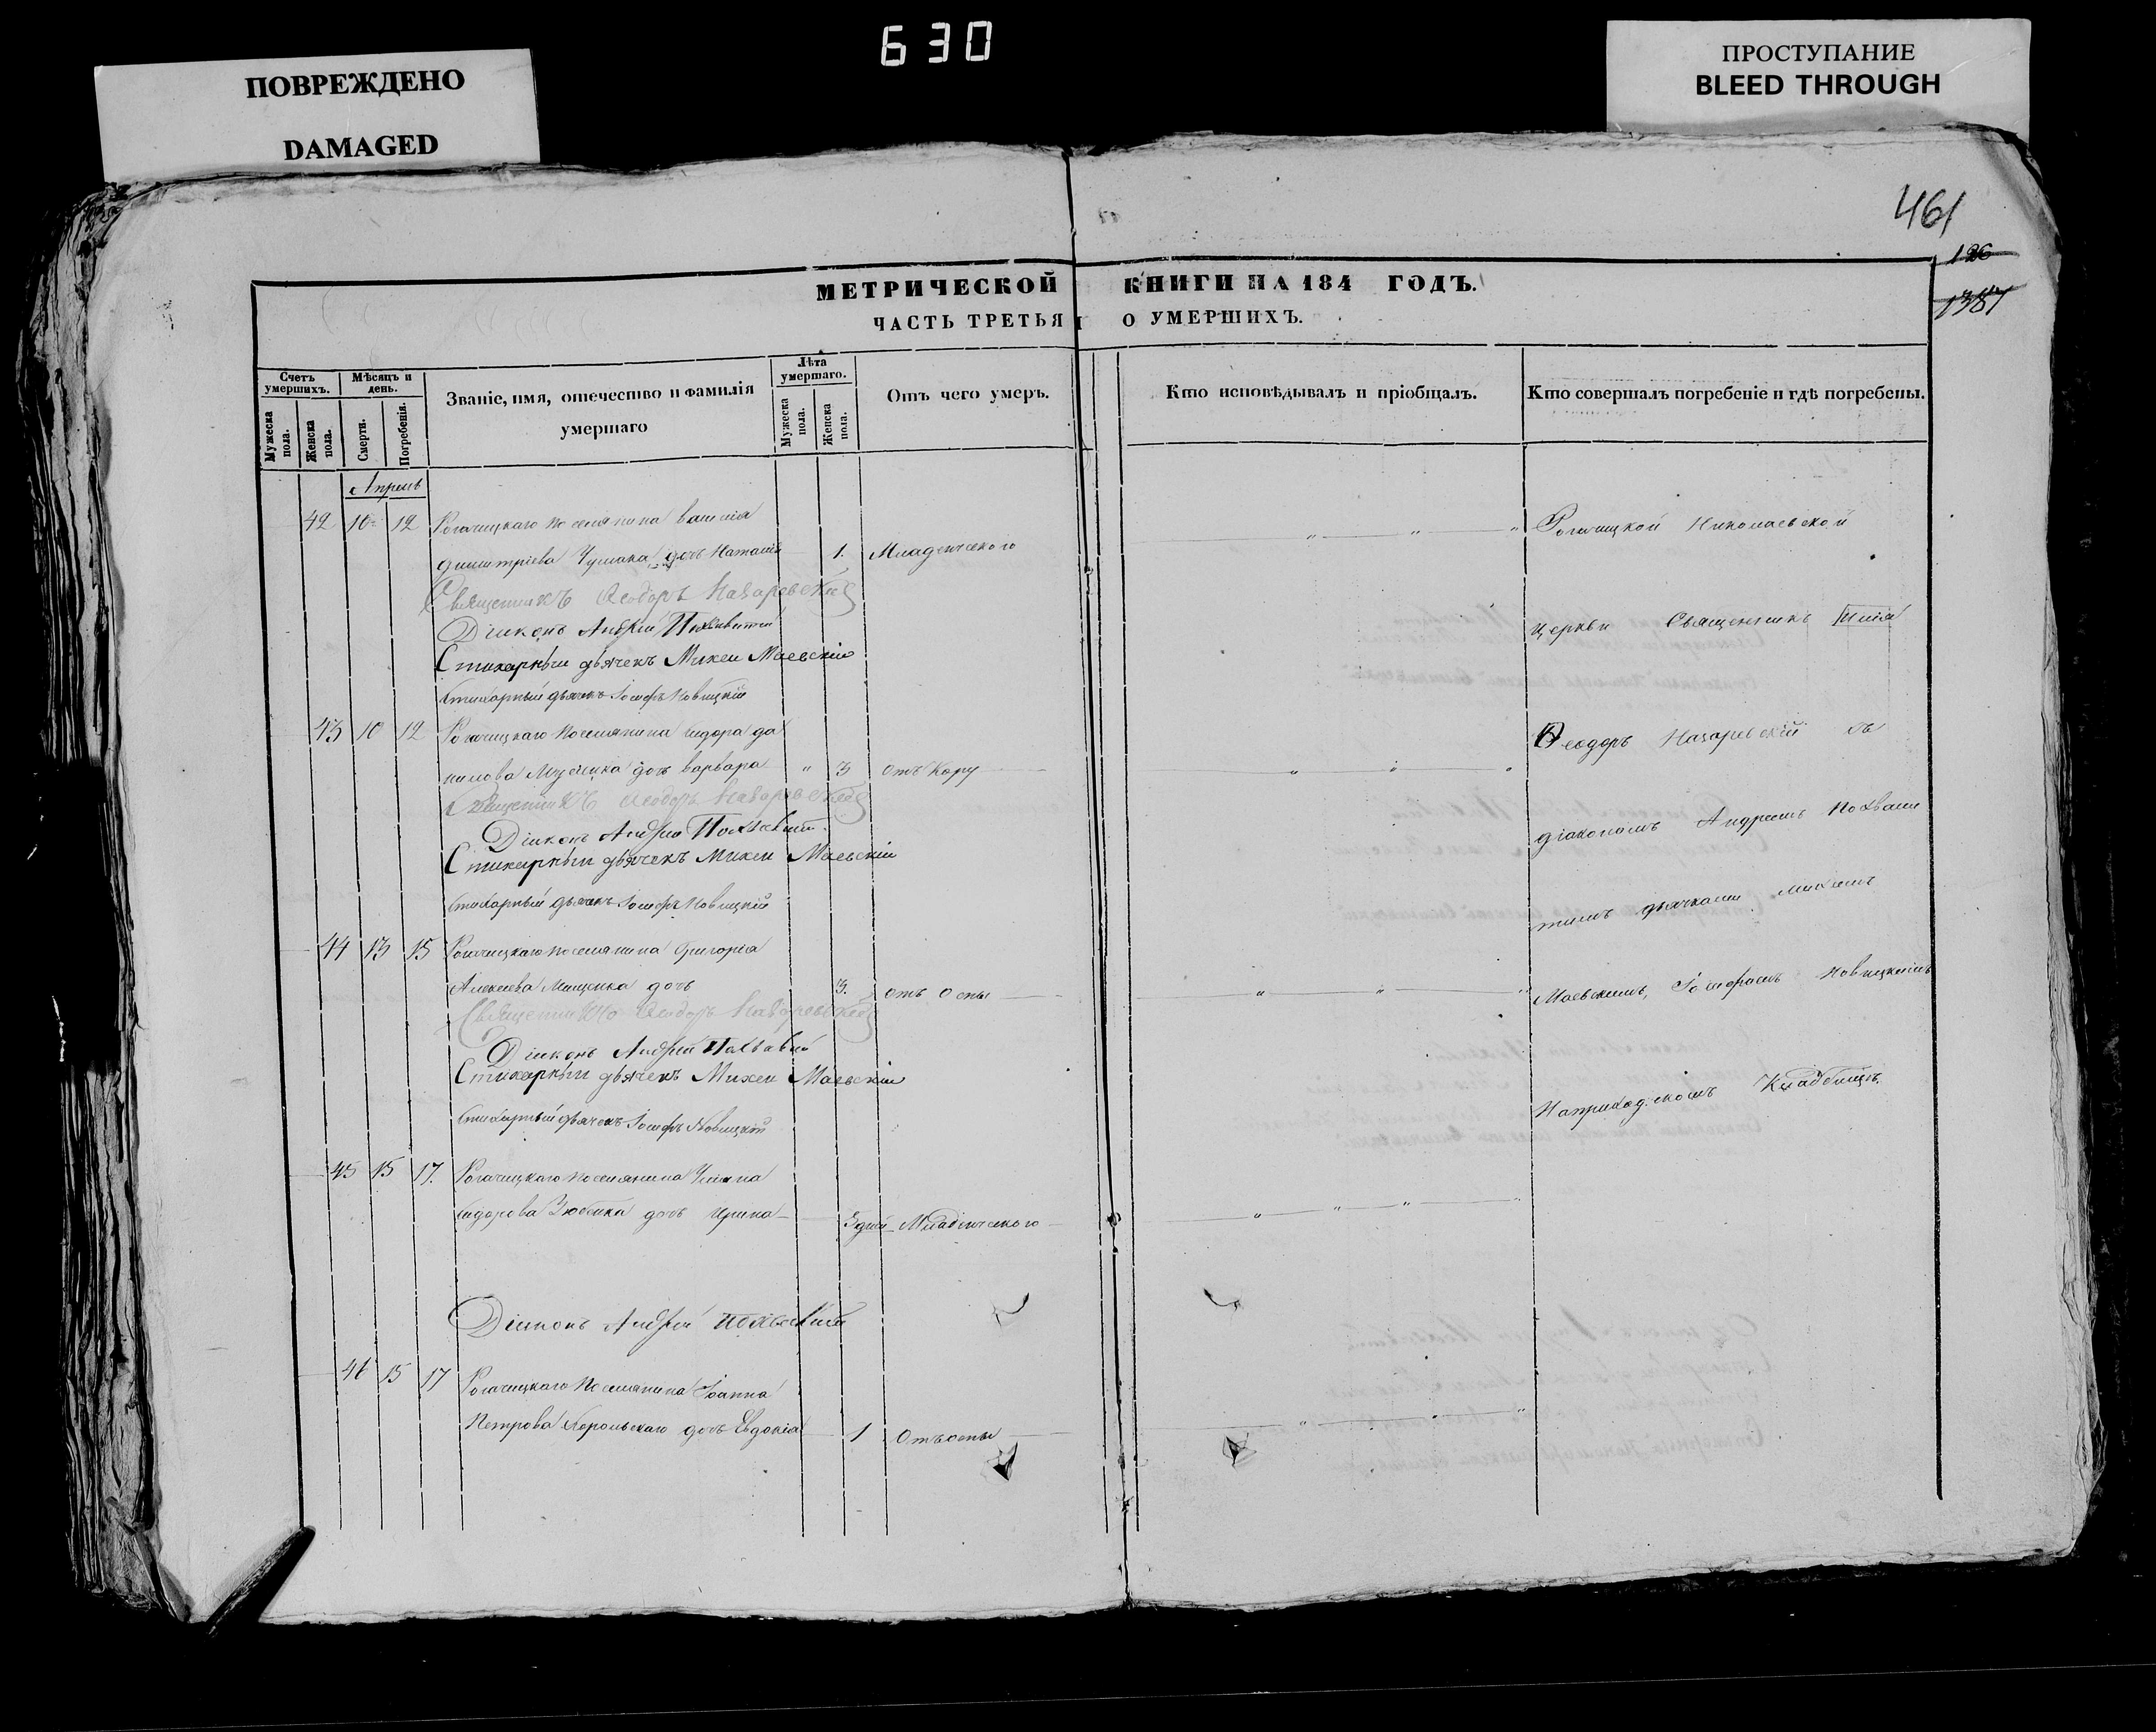 630
ПОВРЕЖДЕНО
DAMAGED
ПРОСТУПАНИЕ
BLEED THROUGH
461
126
1387
МЕТРИЧЕСКОЙ КНИГИ НА 184 ГОДЪ.
ЧАСТЬ ТРЕТЬЯ О УМЕРШИХЪ.
Счетъ умершихъ.
Мужеска пола.
Женска пола.
Мѣсяцъ и день.
Смерти.
Погребенія.
Званіе, имя, отечество и фамилія умершаго
Лѣта умершаго.
Мужеска пола.
Женска пола.
Отъ чего умеръ.
Кто исповѣдывалъ и пріобщалъ.
Кто совершалъ погребеніе и гдѣ погребены.
Апрель
42 10 12 Рогачицкаго поселянина
димитріева Чумака дочь Наталія 1. Младенческого
Священникъ Ѳеодоръ Назаревскій
Діаконъ Андрей
Стихарный дьячекъ Михеи Маевскіи
Стихарный дьячекъ Іосифъ Новицкій
43 10 12 Рогачицкаго поселянина сидора да
нилова дочь варвара " 3 отъ Кору
Священникъ Ѳеодоръ Назаревскій
Діаконъ Андрей
Стихарный дьячекъ Михеи Маевскіи
Стихарный дьячекъ Іосифъ Новицкій
44 13 15 Рогачицкаго поселянина Григорія
Алексеева Мищенка дочь 3. отъ оспы
Священникъ Ѳеодоръ Назаревскій
Діаконъ Андрей
Стихарный дьячекъ Михеи Маевскіи
Стихарный дьячекъ Іосифъ Новицкій
45 15 17. Рогачицкаго поселянина
сидорова дочь Ирина 3 дней Младенческого
Діаконъ Андрей
46 15 17 Рогачицкаго поселянина Іоанна
Петрова дочь Евдокія 1 Отъ оспы
Рогачицкой Николаевской
церкви Священникъ
Ѳеодоръ Назаревскій съ
діакономъ Андреемъ Похвали
тимъ дьячками Михеемъ
Маевскимъ, Іосифомъ Новицкимъ
На приходскомъ Кладбищѣ.